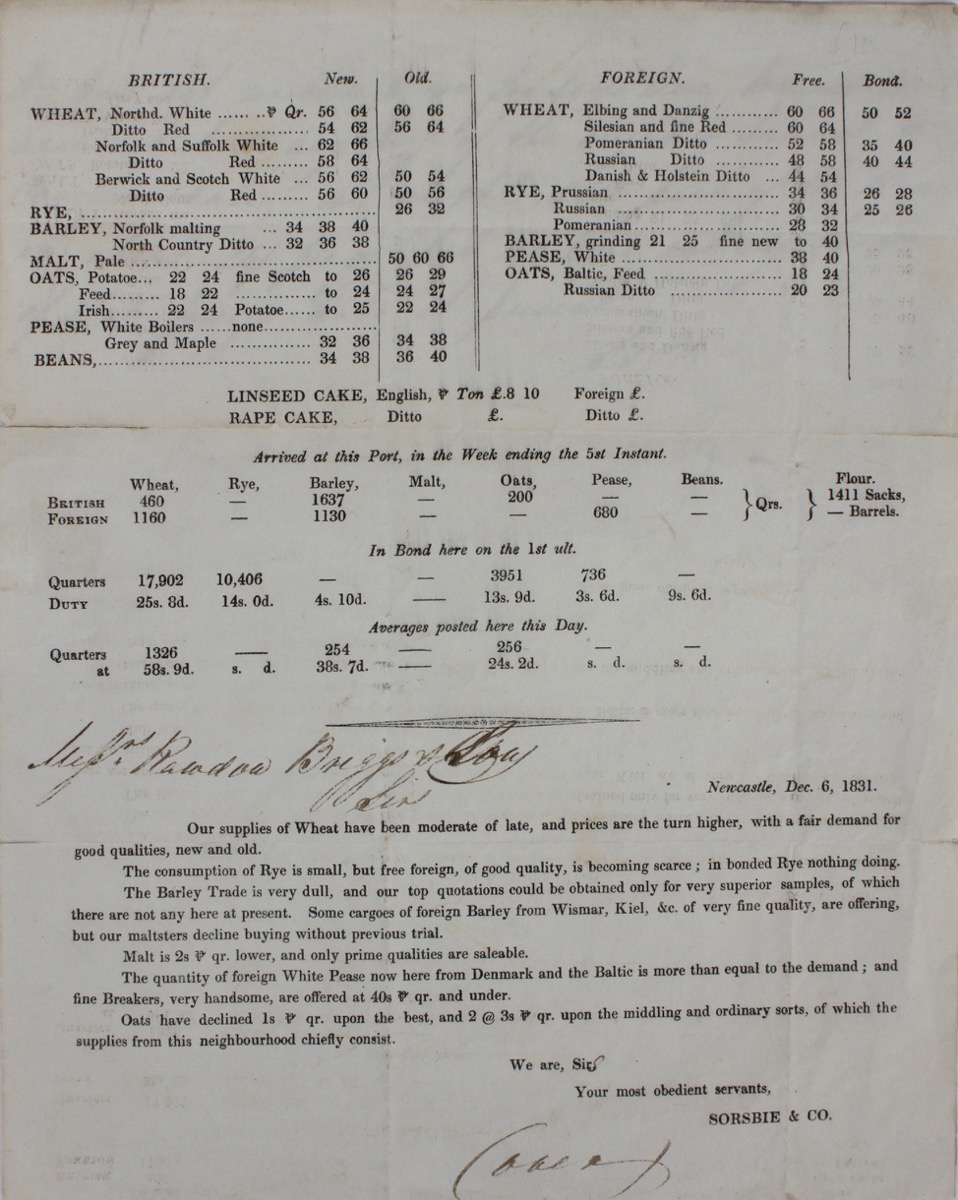 BRITISH. New. Old.
WHEAT, Northd. White ...... ..℘ Qr. 56 64 60 66
Ditto Red .................. 54 62 56 64
Norfolk and Suffolk White ... 62 66
Ditto Red ......... 58 64
Berwick and Scotch White ... 56 62 50 54
Ditto Red ......... 56 60 50 56
RYE, ...................................................... 26 32
BARLEY, Norfolk malting ... 34 38 40
North Country Ditto ... 32 36 38
MALT, Pale ............................................. 50 60 66
OATS, Potatoe... 22 24 fine Scotch to 26 26 29
Feed......... 18 22 ............... to 24 24 27
Irish......... 22 24 Potatoe...... to 25 22 24
PEASE, White Boilers ......none.....................
Grey and Maple ............... 32 36 34 38
BEANS,........................................ 34 38 36 40
FOREIGN. Free. Bond.
WHEAT, Elbing and Danzig ............ 60 66 50 52
Silesian and fine Red ......... 60 64
Pomeranian Ditto ............ 52 58 35 40
Russian Ditto ............ 48 58 40 44
Danish & Holstein Ditto ... 44 54
RYE, Prussian .............................. 34 36 26 28
Russian .............................. 30 34 25 26
Pomeranian ........................ 28 32
BARLEY, grinding 21 25 fine new to 40
PEASE, White .............................. 38 40
OATS, Baltic, Feed ........................ 18 24
Russian Ditto ..................... 20 23
LINSEED CAKE, English, ℘ Ton £.8 10 Foreign £.
RAPE CAKE, Ditto £. Ditto £.
Arrived at this Port, in the Week ending the 5st Instant.
Wheat, Rye, Barley, Malt, Oats, Pease, Beans. Flour.
BRITISH 460 — 1637 — 200 — — } Qrs. } 1411 Sacks,
FOREIGN 1160 — 1130 — — 680 — — Barrels.
In Bond here on the 1st ult.
Quarters 17,902 10,406 — — 3951 736 —
DUTY 25s. 8d. 14s. 0d. 4s. 10d. — 13s. 9d. 3s. 6d. 9s. 6d.
Averages posted here this Day.
Quarters 1326 — 254 — 256 — —
at 58s. 9d. s. d. 38s. 7d. — 24s. 2d. s. d. s. d.
Messrs Rawdon Briggs & Sons
Sirs
Newcastle, Dec. 6, 1831.
Our supplies of Wheat have been moderate of late, and prices are the turn higher, with a fair demand for
good qualities, new and old.
The consumption of Rye is small, but free foreign, of good quality, is becoming scarce; in bonded Rye nothing doing.
The Barley Trade is very dull, and our top quotations could be obtained only for very superior samples, of which
there are not any here at present. Some cargoes of foreign Barley from Wismar, Kiel, &c. of very fine quality, are offering,
but our maltsters decline buying without previous trial.
Malt is 2s ℘ qr. lower, and only prime qualities are saleable.
The quantity of foreign White Pease now here from Denmark and the Baltic is more than equal to the demand; and
fine Breakers, very handsome, are offered at 40s ℘ qr. and under.
Oats have declined 1s ℘ qr. upon the best, and 2 @ 3s ℘ qr. upon the middling and ordinary sorts, of which the
supplies from this neighbourhood chiefly consist.
We are, Sirs
Your most obedient servants,
SORSBIE & CO.
(over)